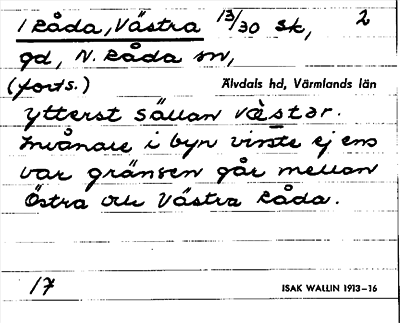 1 Råda, Västra 13/30 sk, 2
gd, N. Råda sn,
(forts.) Älvdals hd, Värmlands län
ytterst sällan vä̀star.
Invånare i byn visste ej ens
var gränsen går mellan
Östra och Västra Råda.
17 ISAK WALLIN 1913–16